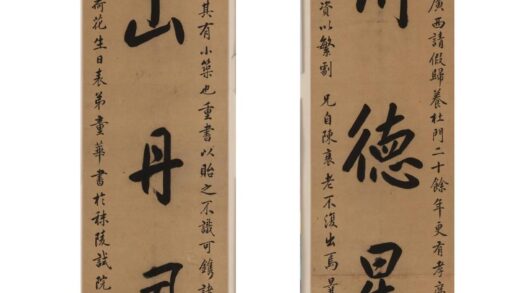 廣西請假歸養杜門二十餘年更有孝
德星
資以繁劇 兄自陳衰老不復出焉
其有小築也重書以貽之不識可鐫諸
山丹
荷花生日表弟童華書於秣陵試院